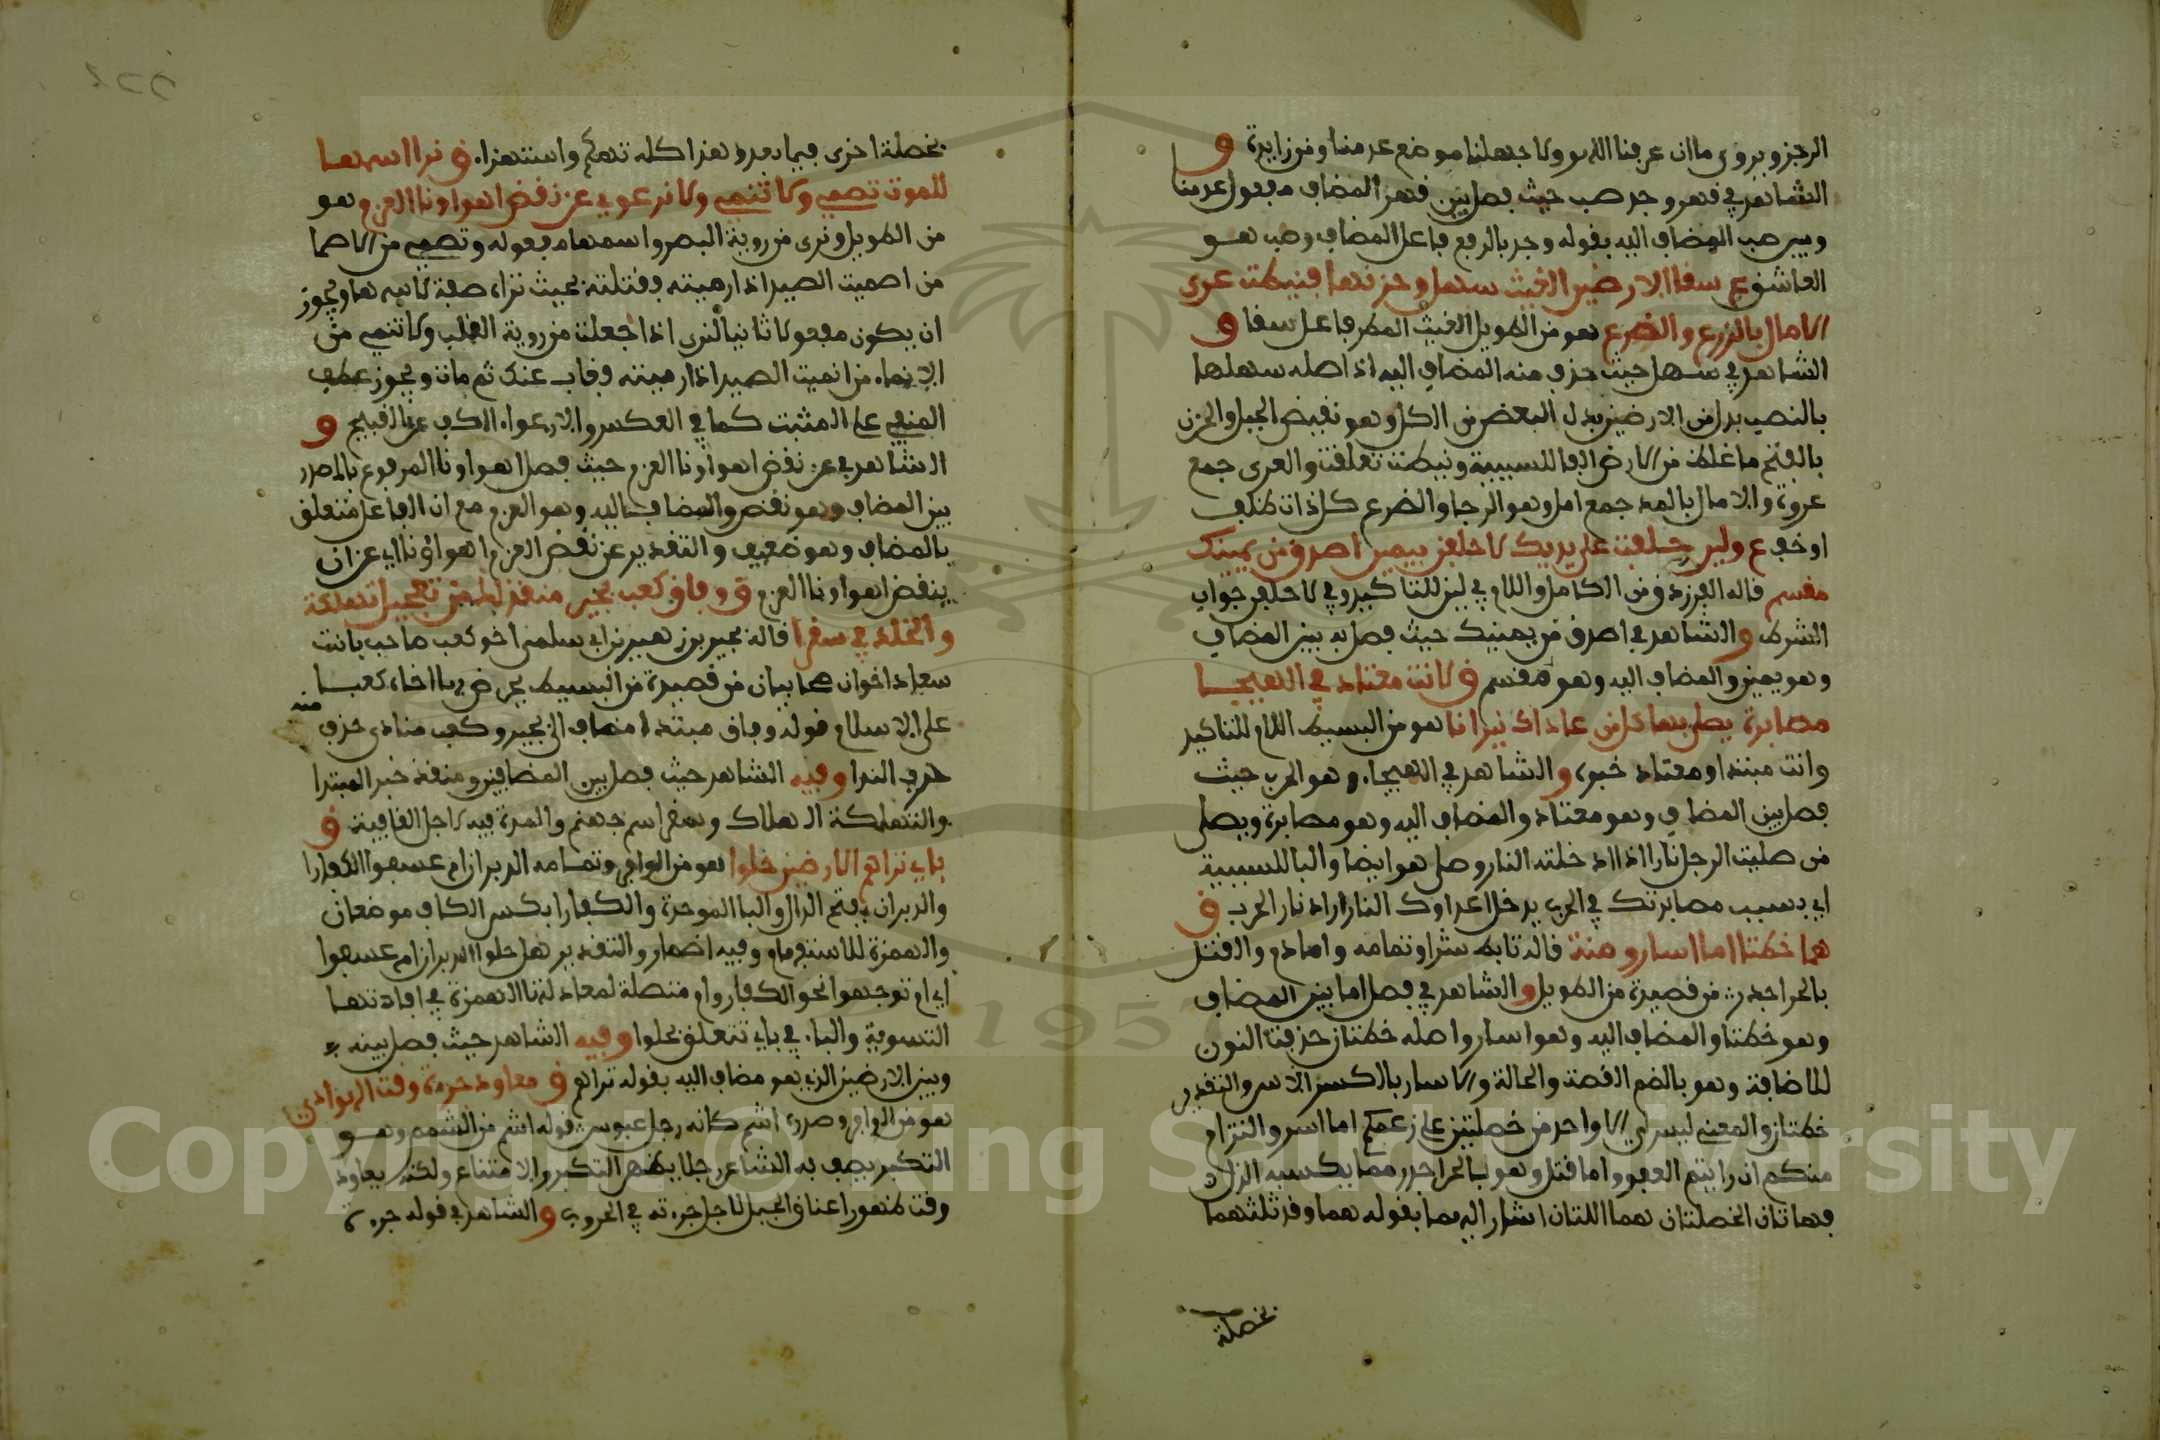 الرجز ويروى ما ان عرفنا الهوى ولا جهلنا موضع عدمنا ونون زايدة و
الشاهد في قهر وجد صب حيث فصل بين قهر المضاف مفعول عدمنا
وبين صب المضاف اليه بقوله وجد بالرفع فاعل المضاف وصب هو
العاشق ع سقا الارضين الغيث سهل وحزنها فنيطت عرى
الامال بالزرع والضرع هو من الطويل الغيث المطر فاعل سقا و
الشاهد في سهل حيث حذف منه المضاف اليه اذ اصله سهلها
بالنصب بدل من الارضين بدل البعض من الكل وهو نقيض الجبل والحزن
بالفتح ما غلظ من الارض الفا للسببية ونيطت تعلقت والعرى جمع
عروة والامال بالمد جمع امل وهو الرجا والضرع كل ذات ظلف
او خف ع ولين حلفت على يديك لاحلفن بيمين اصدق من يمينك
مقسم قاله الفرزدق من الكامل واللام في لين للتاكيد وفي لاحلفن جواب
الشرط والشاهد في اصدق من يمينك حيث فصل به بين المضاف
وهو يمين والمضاف اليه وهو مقسم ق لانت معتاد في الهيجا
مصابرة يصلى بها كل من عاداك نيرانا هو من البسيط اللام للتاكيد
وانت مبتدا ومعتاد خبره والشاهد في الهيجا وهو الحرب حيث
فصل بين المضاف وهو معتاد والمضاف اليه وهو مصابرة ويصلى
من صليت الرجل نارا اذا ادخلته النار وصل هو ايضا والبا للسببية
اي بسبب مصابرتك في الحرب يدخل اعداوك النار اراد نار الحرب ق
هما خطتا اما اسار ومنة قاله تابط شرا وتمامه واما دم والقتل
بالحر اجدر من قصيدة من الطويل والشاهد في فصل اما بين المضاف
وهو خطتا والمضاف اليه وهو اسار واصله خطتان حذفت النون
للاضافة وهو بالضم القصة والحالة والاسار بالكسر الاسر والتقدير
خطتان والمعنى ليس لي الا واحد من خصلتين على زعمكم اما اسر والتزام
منكم ان رايتم العفو واما قتل وهو بالحر اجدر مما يكسبه الذل و
فهاتان الخصلتان هما اللتان اشار اليهما بقوله هما وقد ثلثهما
بخصلة
بخصلة اخرى فيما بعده هذا كله تهكم واستهزا ق نرا اسهما
للموت تصمي ولا تنمي ولا نرعوي عن نقض اهواونا العزم وهو
من الطويل ونرى من روية البصر واسهما مفعوله وتصمي من الاصما
من اصميت الصيد اذا رميته فقتلته بحيث تراه صفة لاسهما ويجوز
ان يكون مفعولا ثانيا لنرى اذا جعلت من روية القلب ولا تنمي من
الانماء من انميت الصيد اذا رميته وغاب عنك ثم مات ويجوز عطف
المنفي على المثبت كما في العكس والارعواء الكف عن القبيح و
الشاهد في عن نقض اهواونا العزم حيث فصل اهواونا المرفوع بالمصدر
بين المضاف وهو نقض والمضاف اليه وهو العزم مع ان الفاعل متعلق
بالمضاف وهو ضعيف والتقدير عن نقض العزم اهواونا اي عن ان
ينقض اهواونا العزم ق وفاق كعب بجير منقذ لك من تعجيل تهلكة
والخلد في سقرا قاله بجير بن زهير بن ابي سلمى اخو كعب صاحب بانت
سعاد اخوان صحابيان من قصيدة من البسيط يحرض بها اخاه كعبا
على الاسلام قوله وفاق مبتدا مضاف الى بجير وكعب منادى حذف منه
حرف الندا وفيه الشاهد حيث فصل بين المضافين ومنقذ خبر المبتدا
والتهلكة الهلاك وسقر اسم جهنم والمدة فيه لاجل القافية ق
باي تراهم الارضين حلوا هو من الوافر وتمامه الدبران ام عسفوا الكفارا
والدبران بفتح الدال والبا الموحدة والكفارا بكسر الكاف موضعان
والهمزة للاستفهام وفيه اضمار والتقدير هل حلوا الدبران ام عسفوا
اي ام توجهوا نحو الكفار وام متصلة لمعادلتها الهمزة في افادتها
التسوية والباء في باي تتعلق بحلوا وفيه الشاهد حيث فصل بينه
وبين الارضين الذي هو مضاف اليه بقوله تراهم ق معاود جرءة وقت الهوادي
هو من الوافر وصدره اشم كانه رجل عبوس قوله اشم من الشمم وهو
التكبر يصف به الشاعر رجلا يظهر التكبر والامتناع ولكنه يعاود
وقت ظهور اعناق الخيل لاجل جرءته في الحروب والشاهد في قوله جرءة
Copyright © King Saud University
1957